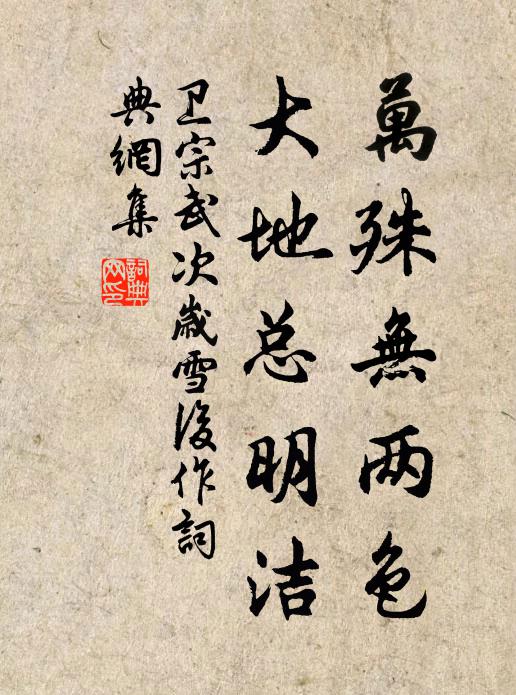 萬殊無两色
大地总明洁
卫宗武次嵗雪後作詞
典網集
詞典
网印